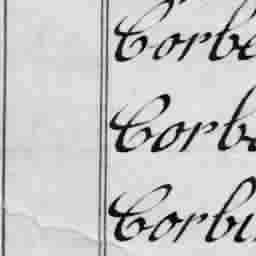 Corbe
Corbe
Corbi